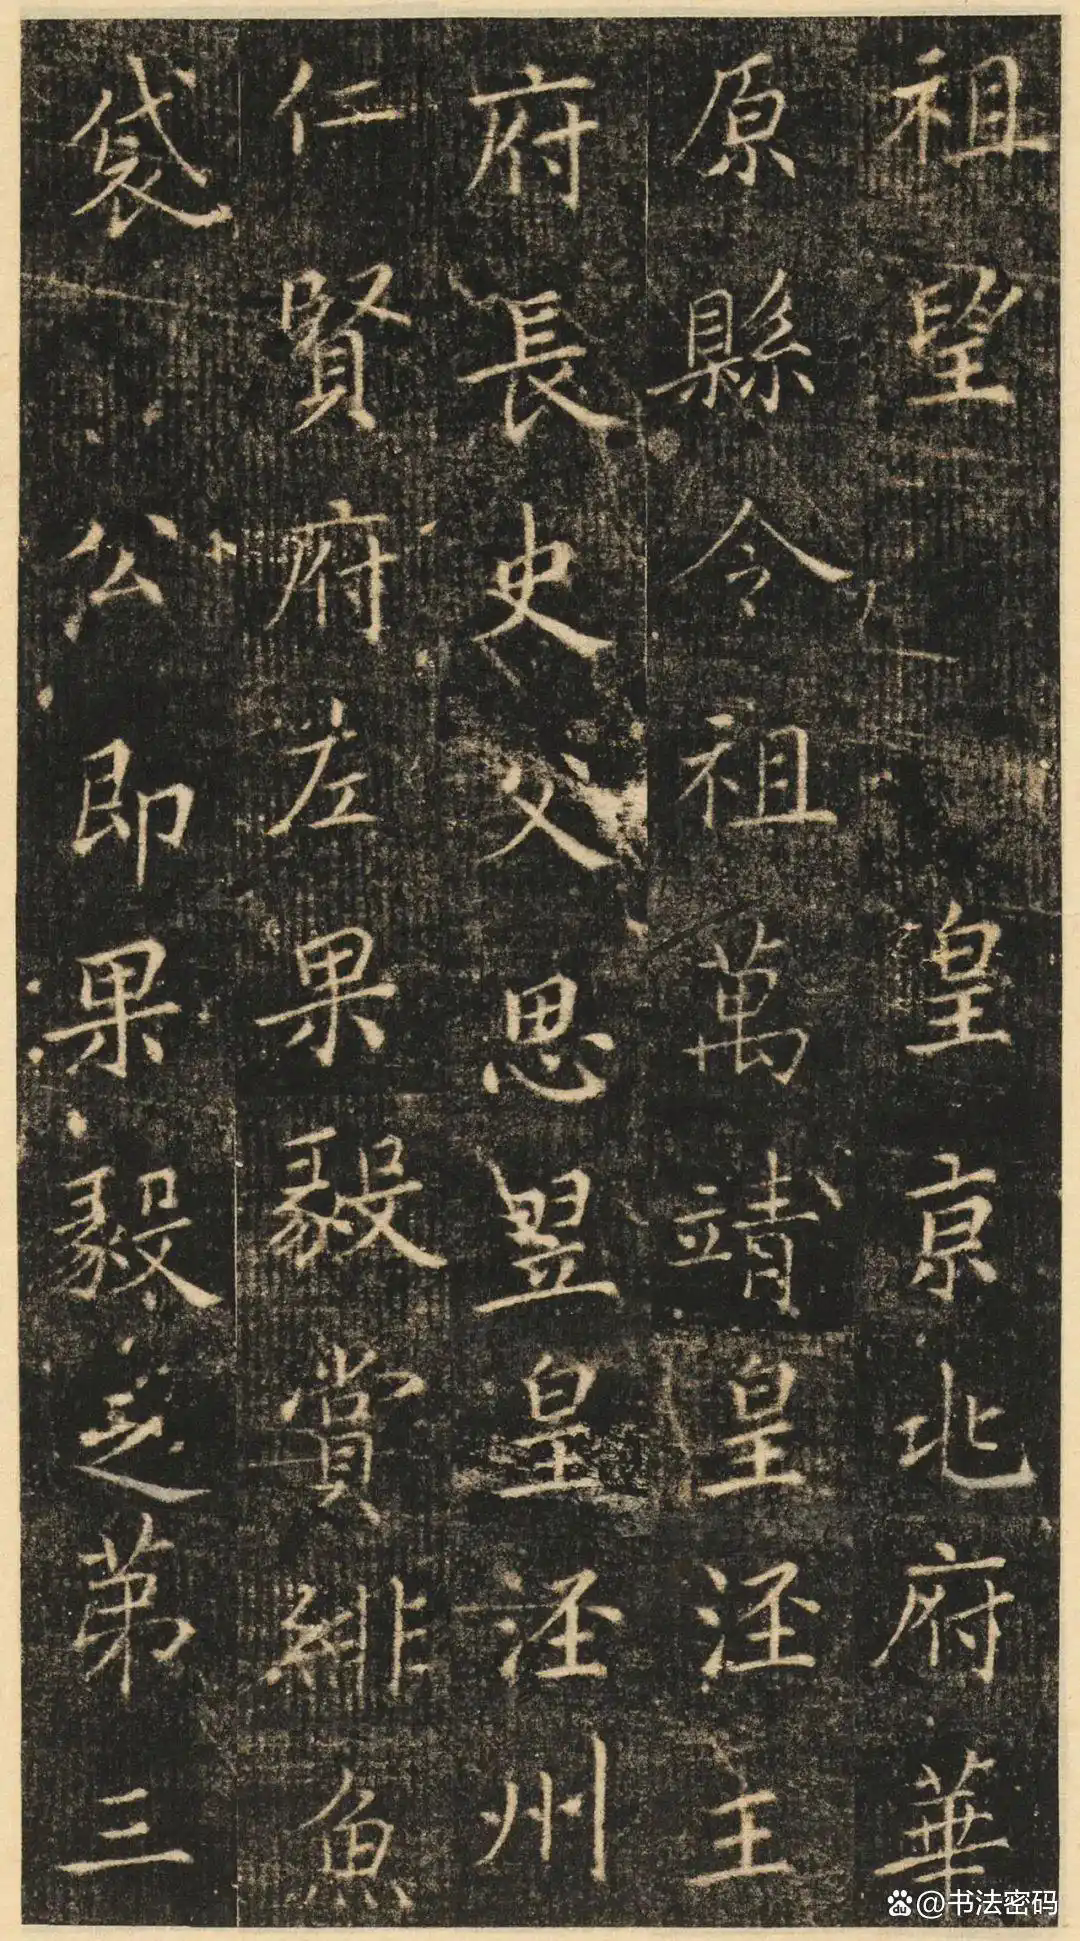 祖望皇京兆府華
原縣令祖萬靖皇涇王
府長史父思翌皇涇州
仁賢府左果毅賞緋魚
袋公即果毅之第三
@书法密码